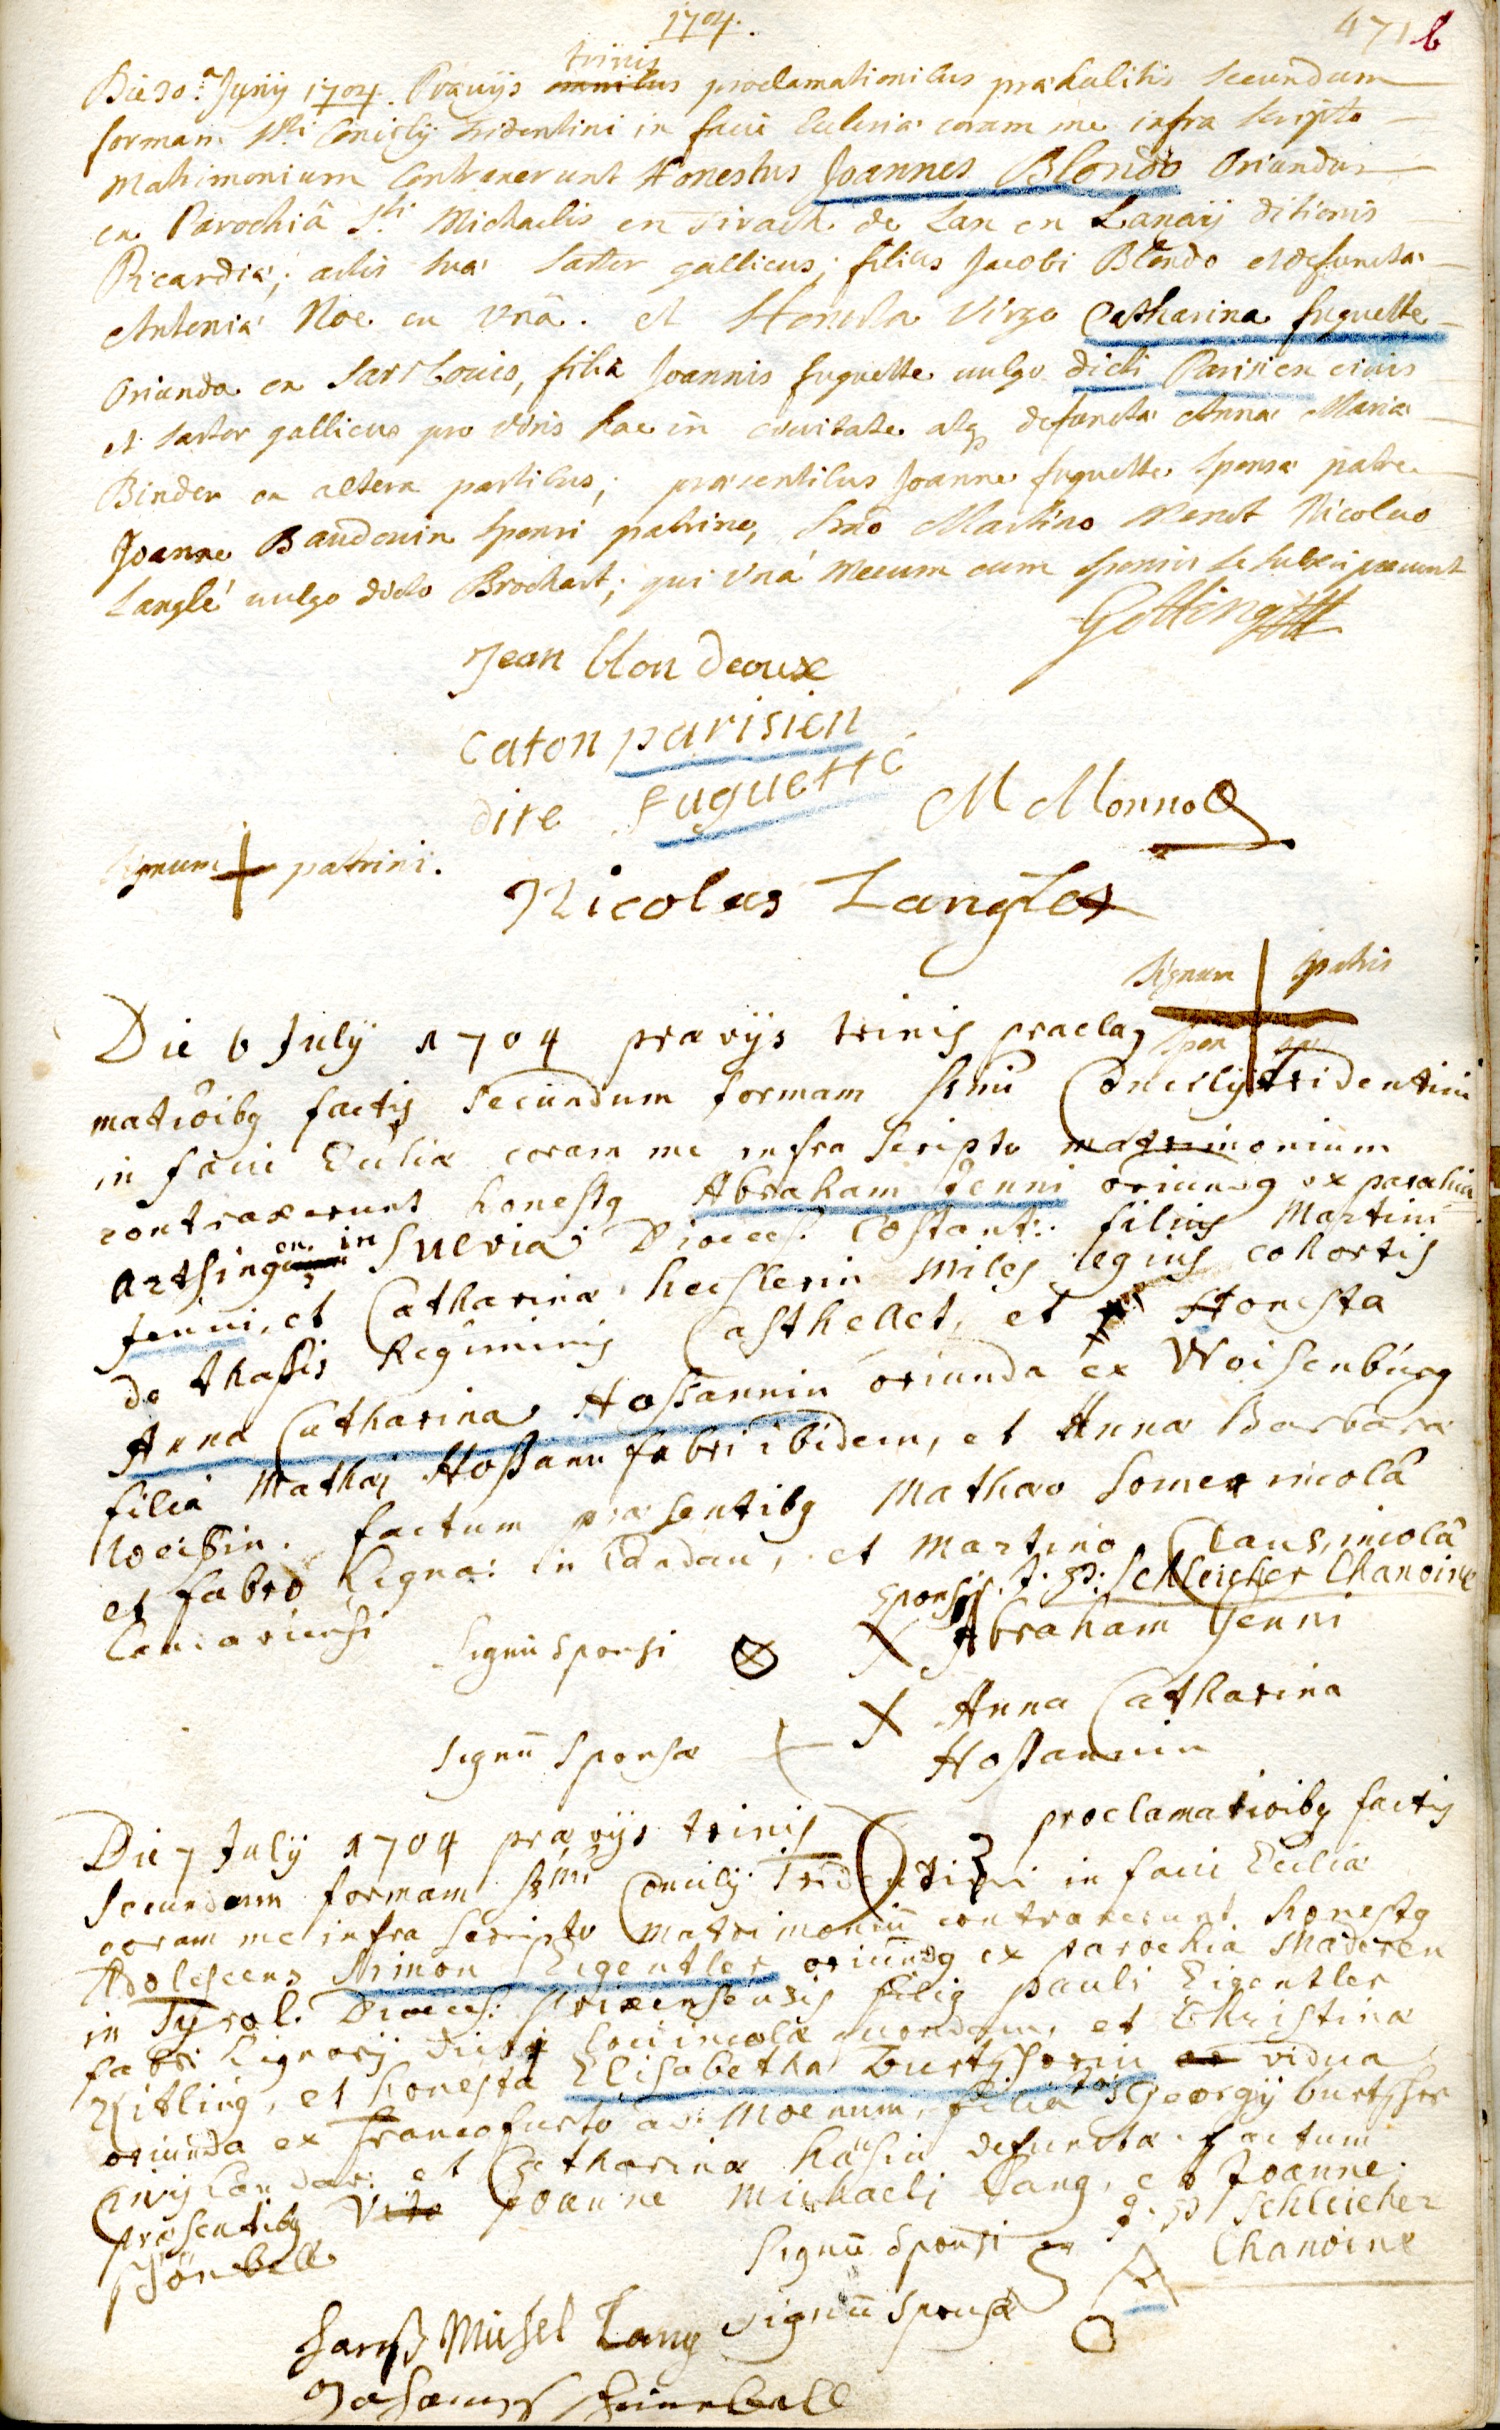 1704.
471 b
Die 30.a Junÿ 1704. Prævÿs trinis omnibus proclamationibus præhabitis secundum
formam Sti Concilÿ Tridentini in facie Ecclesiæ coram me infra scripto
Matrimonium Contraxerunt Honestus Joannes Blondo Oriundus
ex Parochiâ Sti Michaelis en de Lan en ditionis
Picardiæ, artis suæ sartor gallicus, filius Jacobi Blondo et defunctæ
Antoniæ Noe ex unâ. et Honesta Virgo Catharina fuguette
Oriunda ex Sarrlouis, filia Joannis fuguette vulgo dicti Parisien civis
et sartor gallicus pro hac in civitate atq defunctæ Annæ Mariæ
Binder ex altera partibus; præsentibus Joanne fuguette sponsæ patre
Joanne Baudouin sponsi patrino, Martino Nicolao
Langlé vulgo dicto Brochart; qui unà mecum cum sponsis se subscripserunt
Götting
Jean blondeoux
Caton parisien
dite fuguette
M Monnot
Signum + patrini.
Nicolas Langlet
Signum patris
sponsæ
Die 6 Julÿ 1704 prævÿs trinis procla
matiôibq factis secundum formam Concilÿ Tridentini
in facie Ecclîæ coram me infra scripto matrimonium
contraxerunt honestq Abraham Jenni oriundq ex parochia
Artsingen in Suevia Dioeces. Costant: filius Martini
Jenni, et Catharinæ Miles legius cohortis
de Regiminis Casthellet, et Honesta
Anna Catharina Hoßannin oriunda ex Weisenburg
filia Mathæi Hoßann fabri ibidem, et Anna Barbara
Weissin. factum præsentibq Mathæo Somer incolâ
et fabro Lignar: in Landau, et Martino Claus, incolâ
Landaviensi
sponsis J. P. Schleicher Chanoine
Signû sponsi X Abraham Jenni
Signû sponsæ + X Anna Catharina
Hoßannin
Die 7 Julÿ 1704 prævÿs trinis proclamatiôibq factis
secundum formam Concilÿ Tridentini in facie Ecclîæ
coram me infra scripto Matrimoniû contraxerunt honestq
Adolescens Simon Eigentler oriundq ex parochia Maderen
in Tÿrol. Dioeces: Brixensensis filiq Pauli Eigentler
fabri Lignarÿ loci incolæ quondam, et Christinæ
Kitling, et honesta Elisabetha Burtzserin vidua
oriunda ex francofurto ad Moenum, filia Georgÿ burtzser
Civis Landav: et Catharinæ Häsin defunctæ. factum
præsentibq Vito Joanne Michaeli Lang, et Joanne
Schönbell
J. P. Schleicher
Chanoine
Signû sponsi
Signû sponsæ
Hanß Michel Lang
Johannes Scheinbell